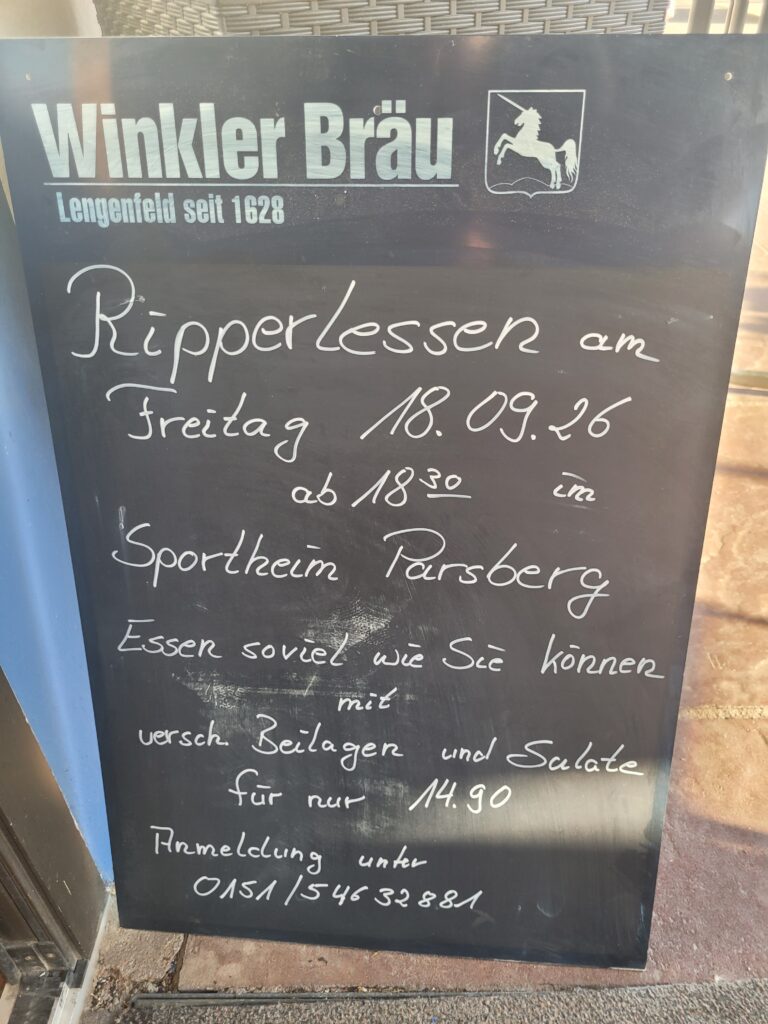 Winkler Bräu
Lengenfeld seit 1628
Ripperlessen am
Freitag 18.09.26
ab 18³⁰ im
Sportheim Parsberg
Essen soviel wie Sie können
mit
versch. Beilagen und Salate
für nur 14.90
Anmeldung unter
0151/54632881